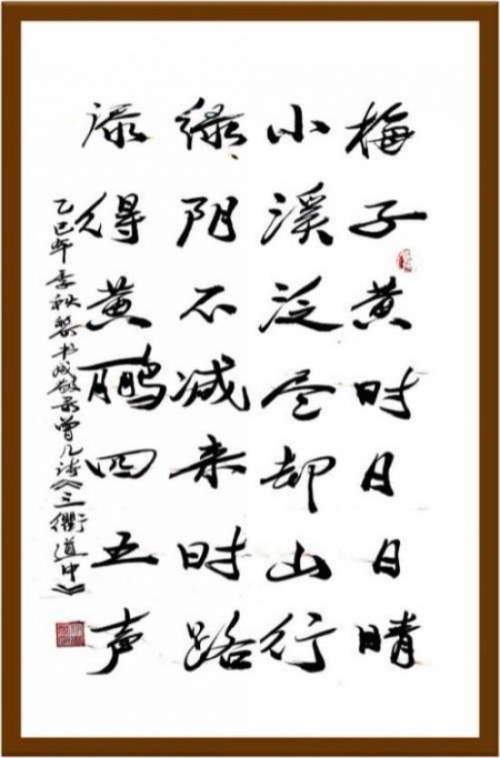 梅子黄时日日晴
小溪泛尽却山行
绿阴不减来时路
添得黄鹂四五声
乙巳年季秋黎书成敬录曾几诗《三衢道中》